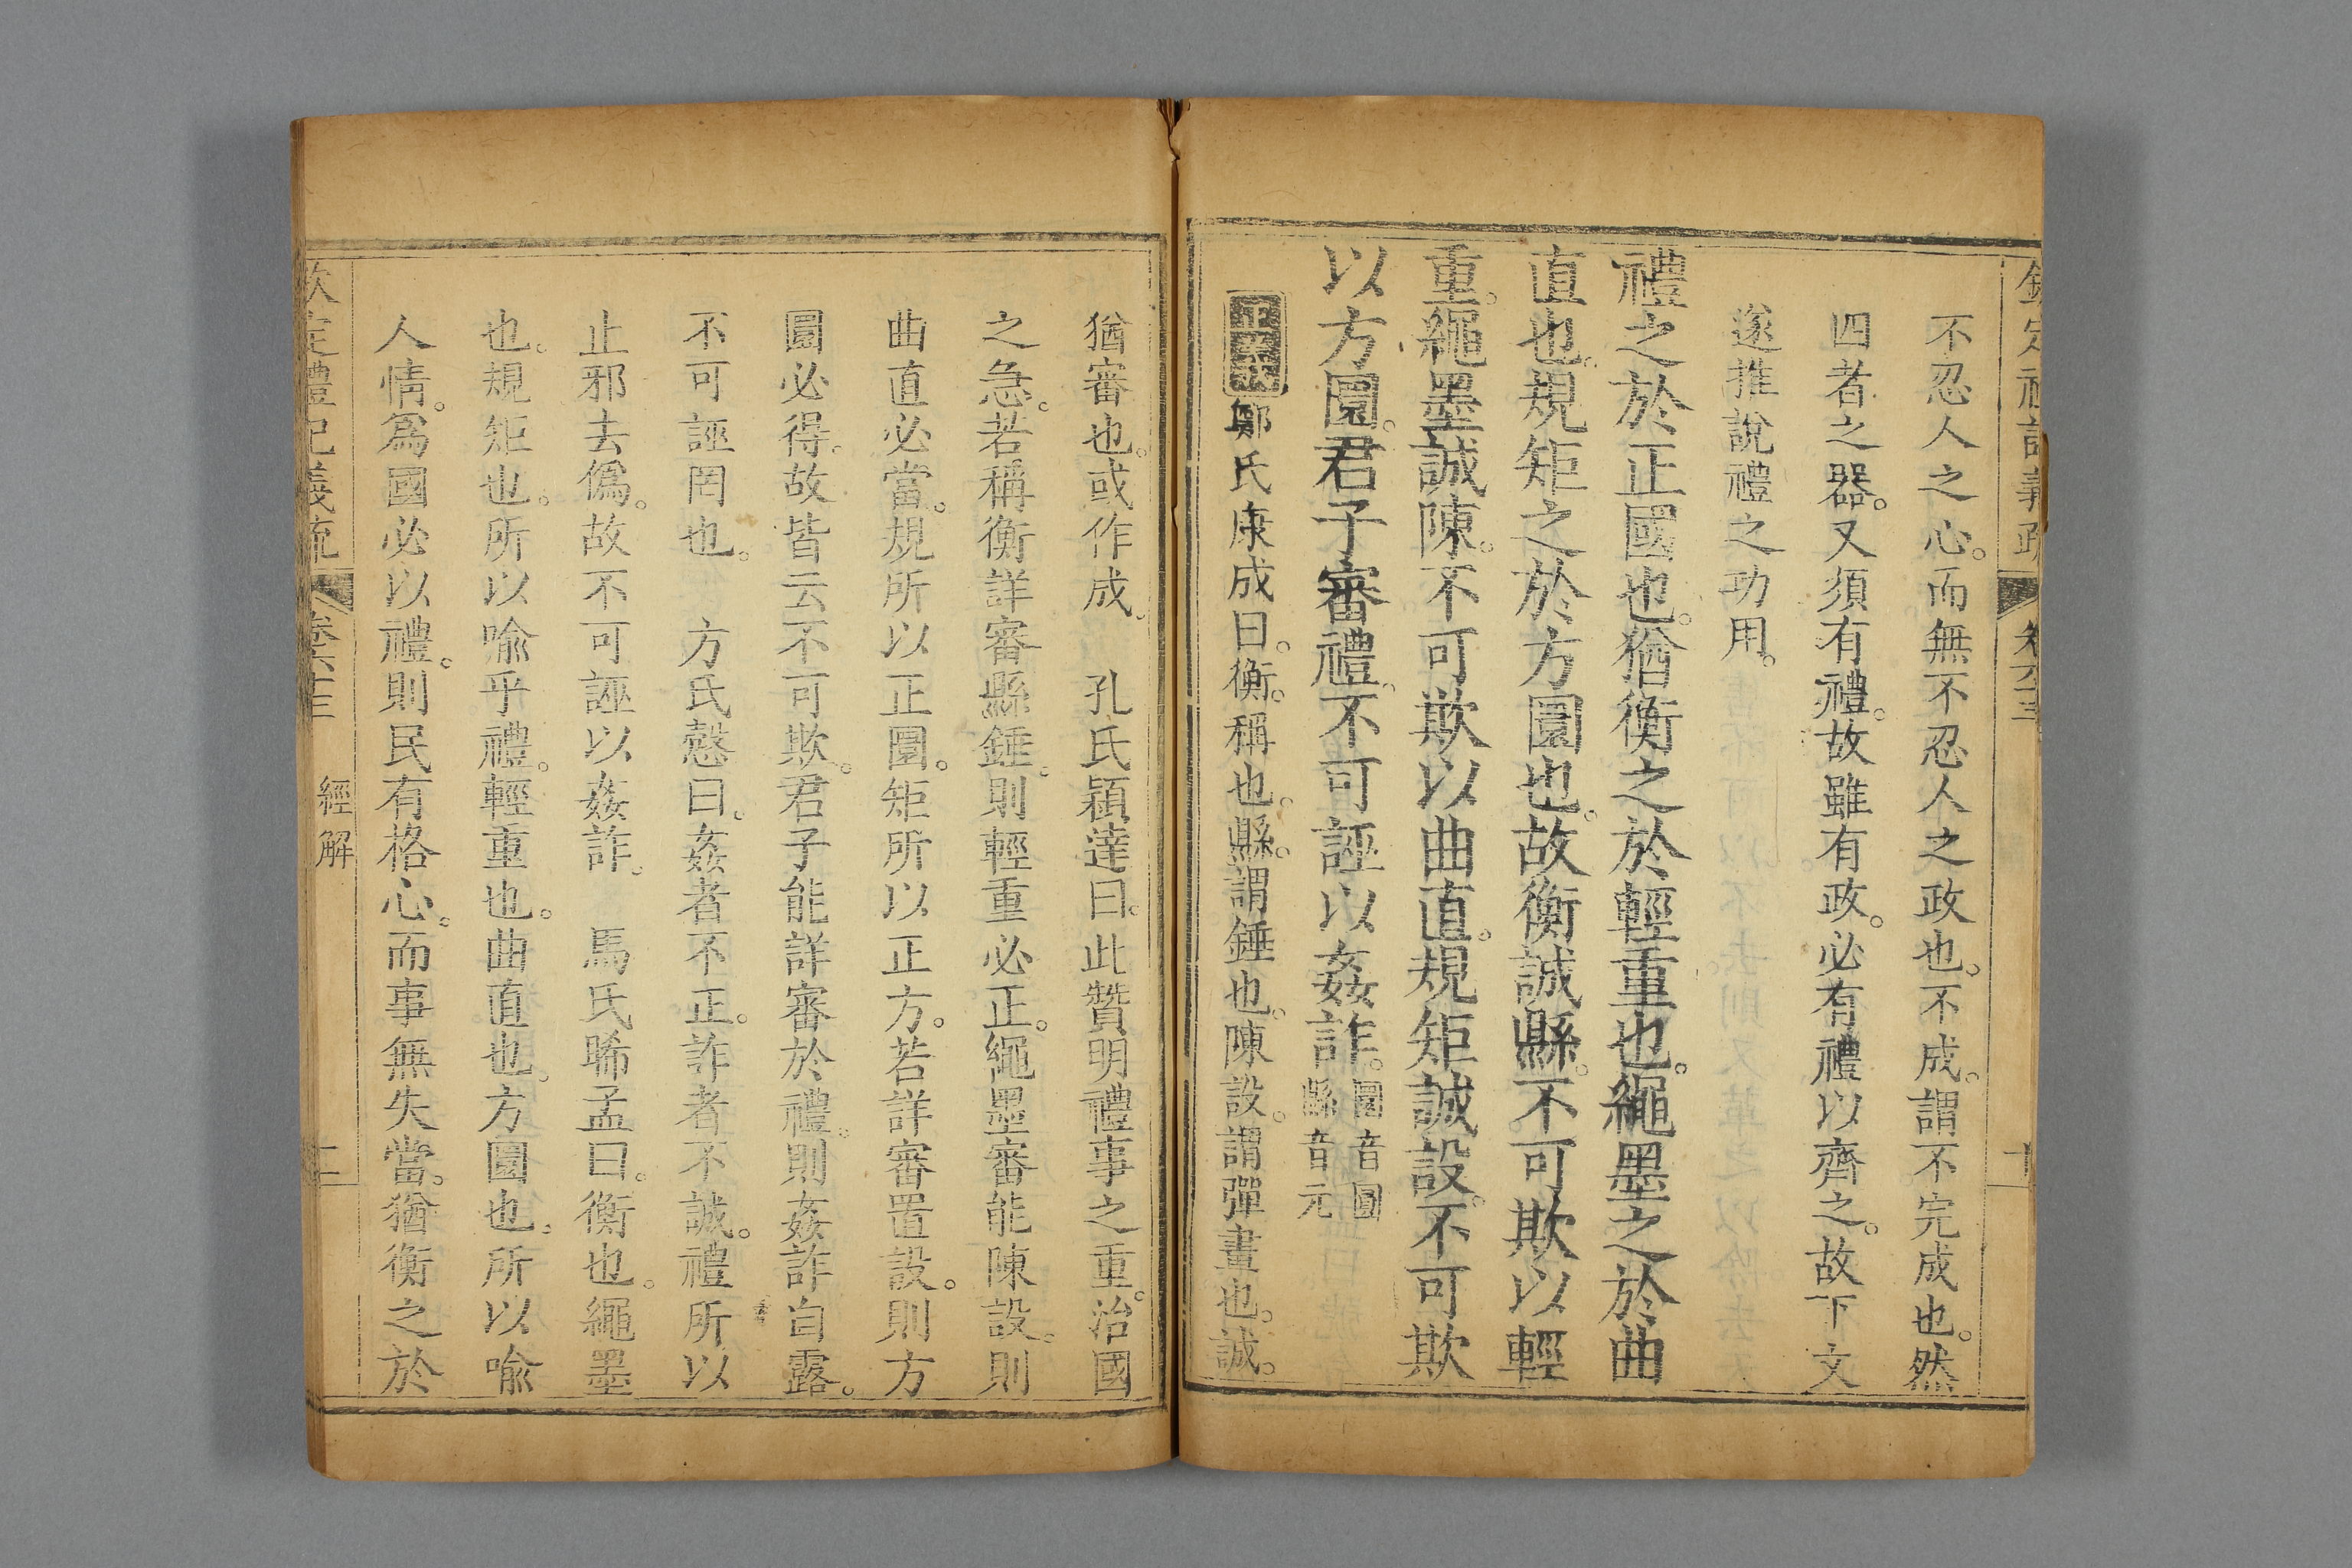 欽定禮記義疏 卷六十三
不忍人之心。而無不忍人之政也。不成。謂不完成也。然
四者之器。又須有禮。故雖有政。必有禮以齊之。故下文
遂推說禮之功用。
禮之於正國也。猶衡之於輕重也。繩墨之於曲
直也。規矩之於方圜也。故衡誠縣。不可欺以輕
重。繩墨誠陳。不可欺以曲直。規矩誠設。不可欺
以方圜。君子審禮。不可誣以姦詐。圜音圓
縣音元
正義 鄭氏康成曰。衡。稱也。縣。謂錘也。陳設。謂彈畫也。誠。
猶審也。或作成。 孔氏穎達曰。此贊明禮事之重。治國
之急。若稱衡詳審縣錘。則輕重必正。繩墨審能陳設。則
曲直必當。規所以正圜。矩所以正方。若詳審置設。則方
圜必得。故皆云不可欺。君子能詳審於禮。則姦詐自露。
不可誣罔也。 方氏慤曰。姦者不正。詐者不誠。禮所以
止邪去僞。故不可誣以姦詐。 馬氏睎孟曰。衡也。繩墨
也。規矩也。所以喩乎禮。輕重也。曲直也。方圜也。所以喩
人情。爲國必以禮。則民有格心。而事無失當。猶衡之於
欽定禮記義疏 卷六十三 經解